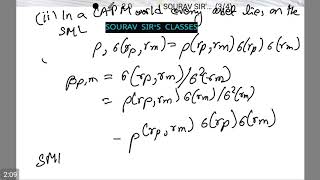 SOURAV SIR'… (3/3)
(ii) In a CAPM world every asset lies on the
SML
SOURAV SIR'S CLASSES
ρ, σ(rp, rm) = ρ(rp, rm) σ(rp) σ(rm)
βp,m = σ(rp, rm) / σ²(rm)
= ρ(rp, rm) σ(rm) / σ²(rm)
- ρ(rp, rm) σ(rp) σ(rm)
SML
2:09